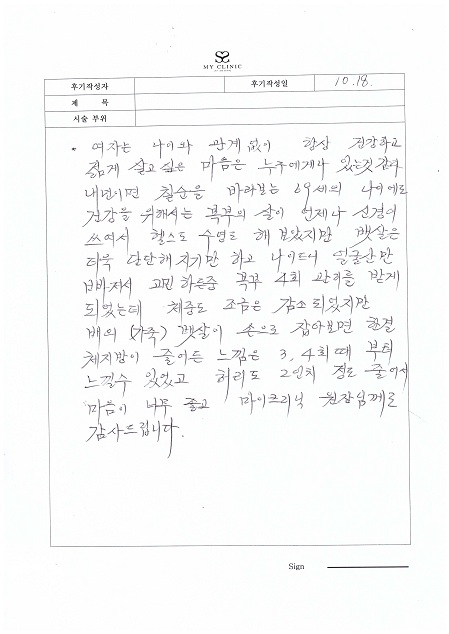 MY CLINIC
후기작성자
후기작성일 10.18.
제 목
시술 부위
• 여자는 나이와 관계없이 항상 건강하고
젊게 살고 싶은 마음은 누구에게나 있는것 같다
내년이면 칠순을 바라보는 69세의 나이에도
건강을 위해서는 복부의 살이 언제나 신경이
쓰여서 헬스도 수영도 해 보았지만 뱃살은
더욱 단단해 지기만 하고 나이드니 얼굴살만
빠져서 고민 하든중 복부 4회 관리를 받게
되었는데 체중도 조금은 감소 되었지만
배의 (가죽) 뱃살이 손으로 잡아보면 한결
체지방이 줄어든 느낌은 3, 4회때 부터
느낄수 있었고 허리도 2인치 정도 줄어서
마음이 너무 좋고 마이크리닉 원장님께로
감사드립니다.
Sign